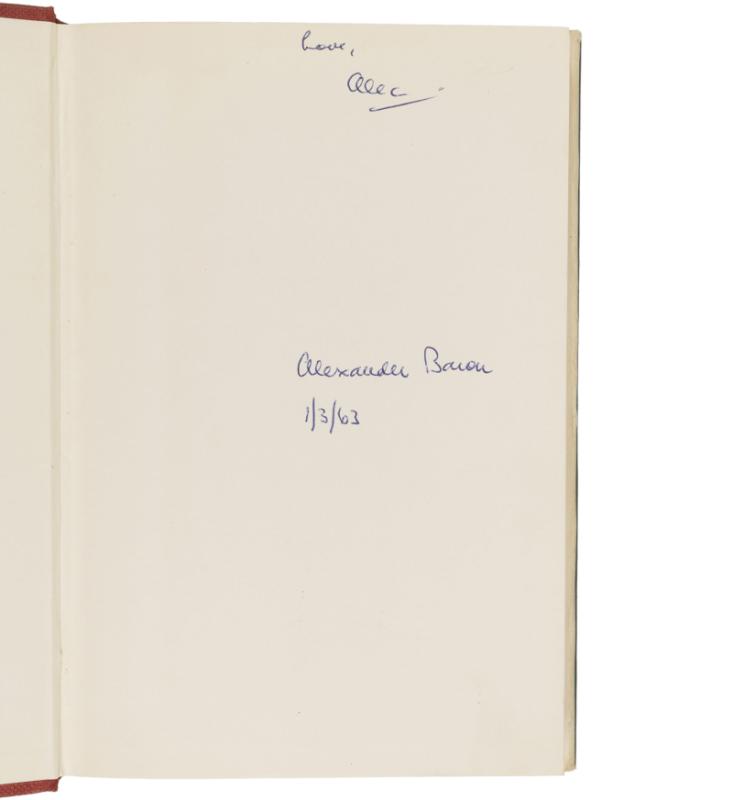 Love,
Alec
Alexander Baron
1/3/63